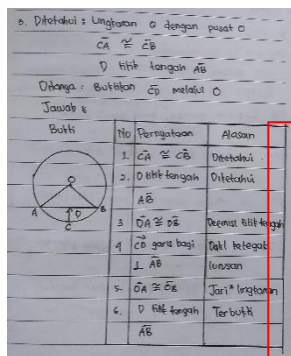 3. Diketahui : Lingkaran O dengan pusat O
CA ≅ CB
D titik tengah AB
Ditanya : Buktikan CD melalui O
Jawab :
Bukti
O
A D B
C
No Pernyataan Alasan
1. CA ≅ CB Diketahui
2. D titik tengah AB Diketahui
3 DA ≅ DB Definisi titik tengah
4 CD garis bagi ⊥ AB Dalil ketegak lurusan
5. OA ≅ OB Jari² lingkaran
6. D titik tengah AB Terbukti